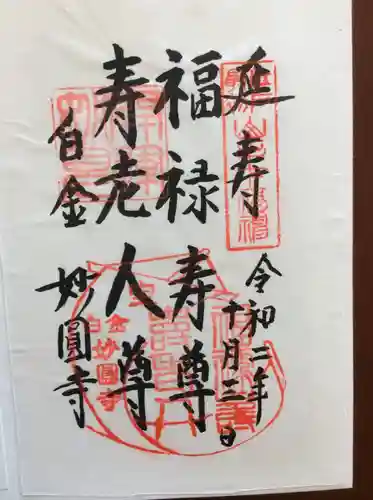 延寿
令和二年
十月三日
福禄寿尊
寿老人尊
白金
妙圓寺
白金妙圓寺